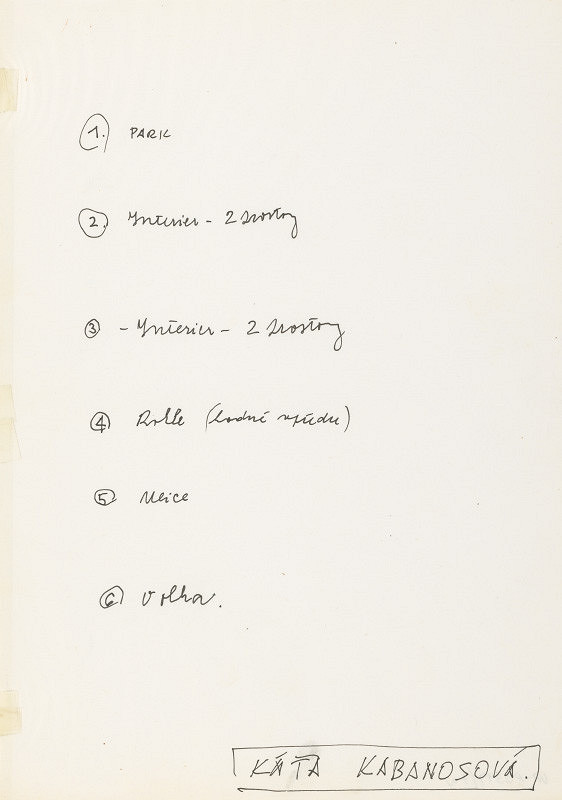 1. PARK
2. Interier - 2 prostory
3 - Interier - 2 prostory
4 Rokle (hodně vpředu)
5 Ulice
6 Volha.
KÁŤA KABANOSOVÁ.